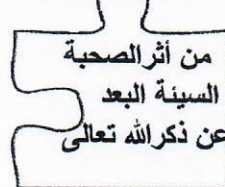 من أثر الصحبة
السيئة البعد
عن ذكر الله تعالى